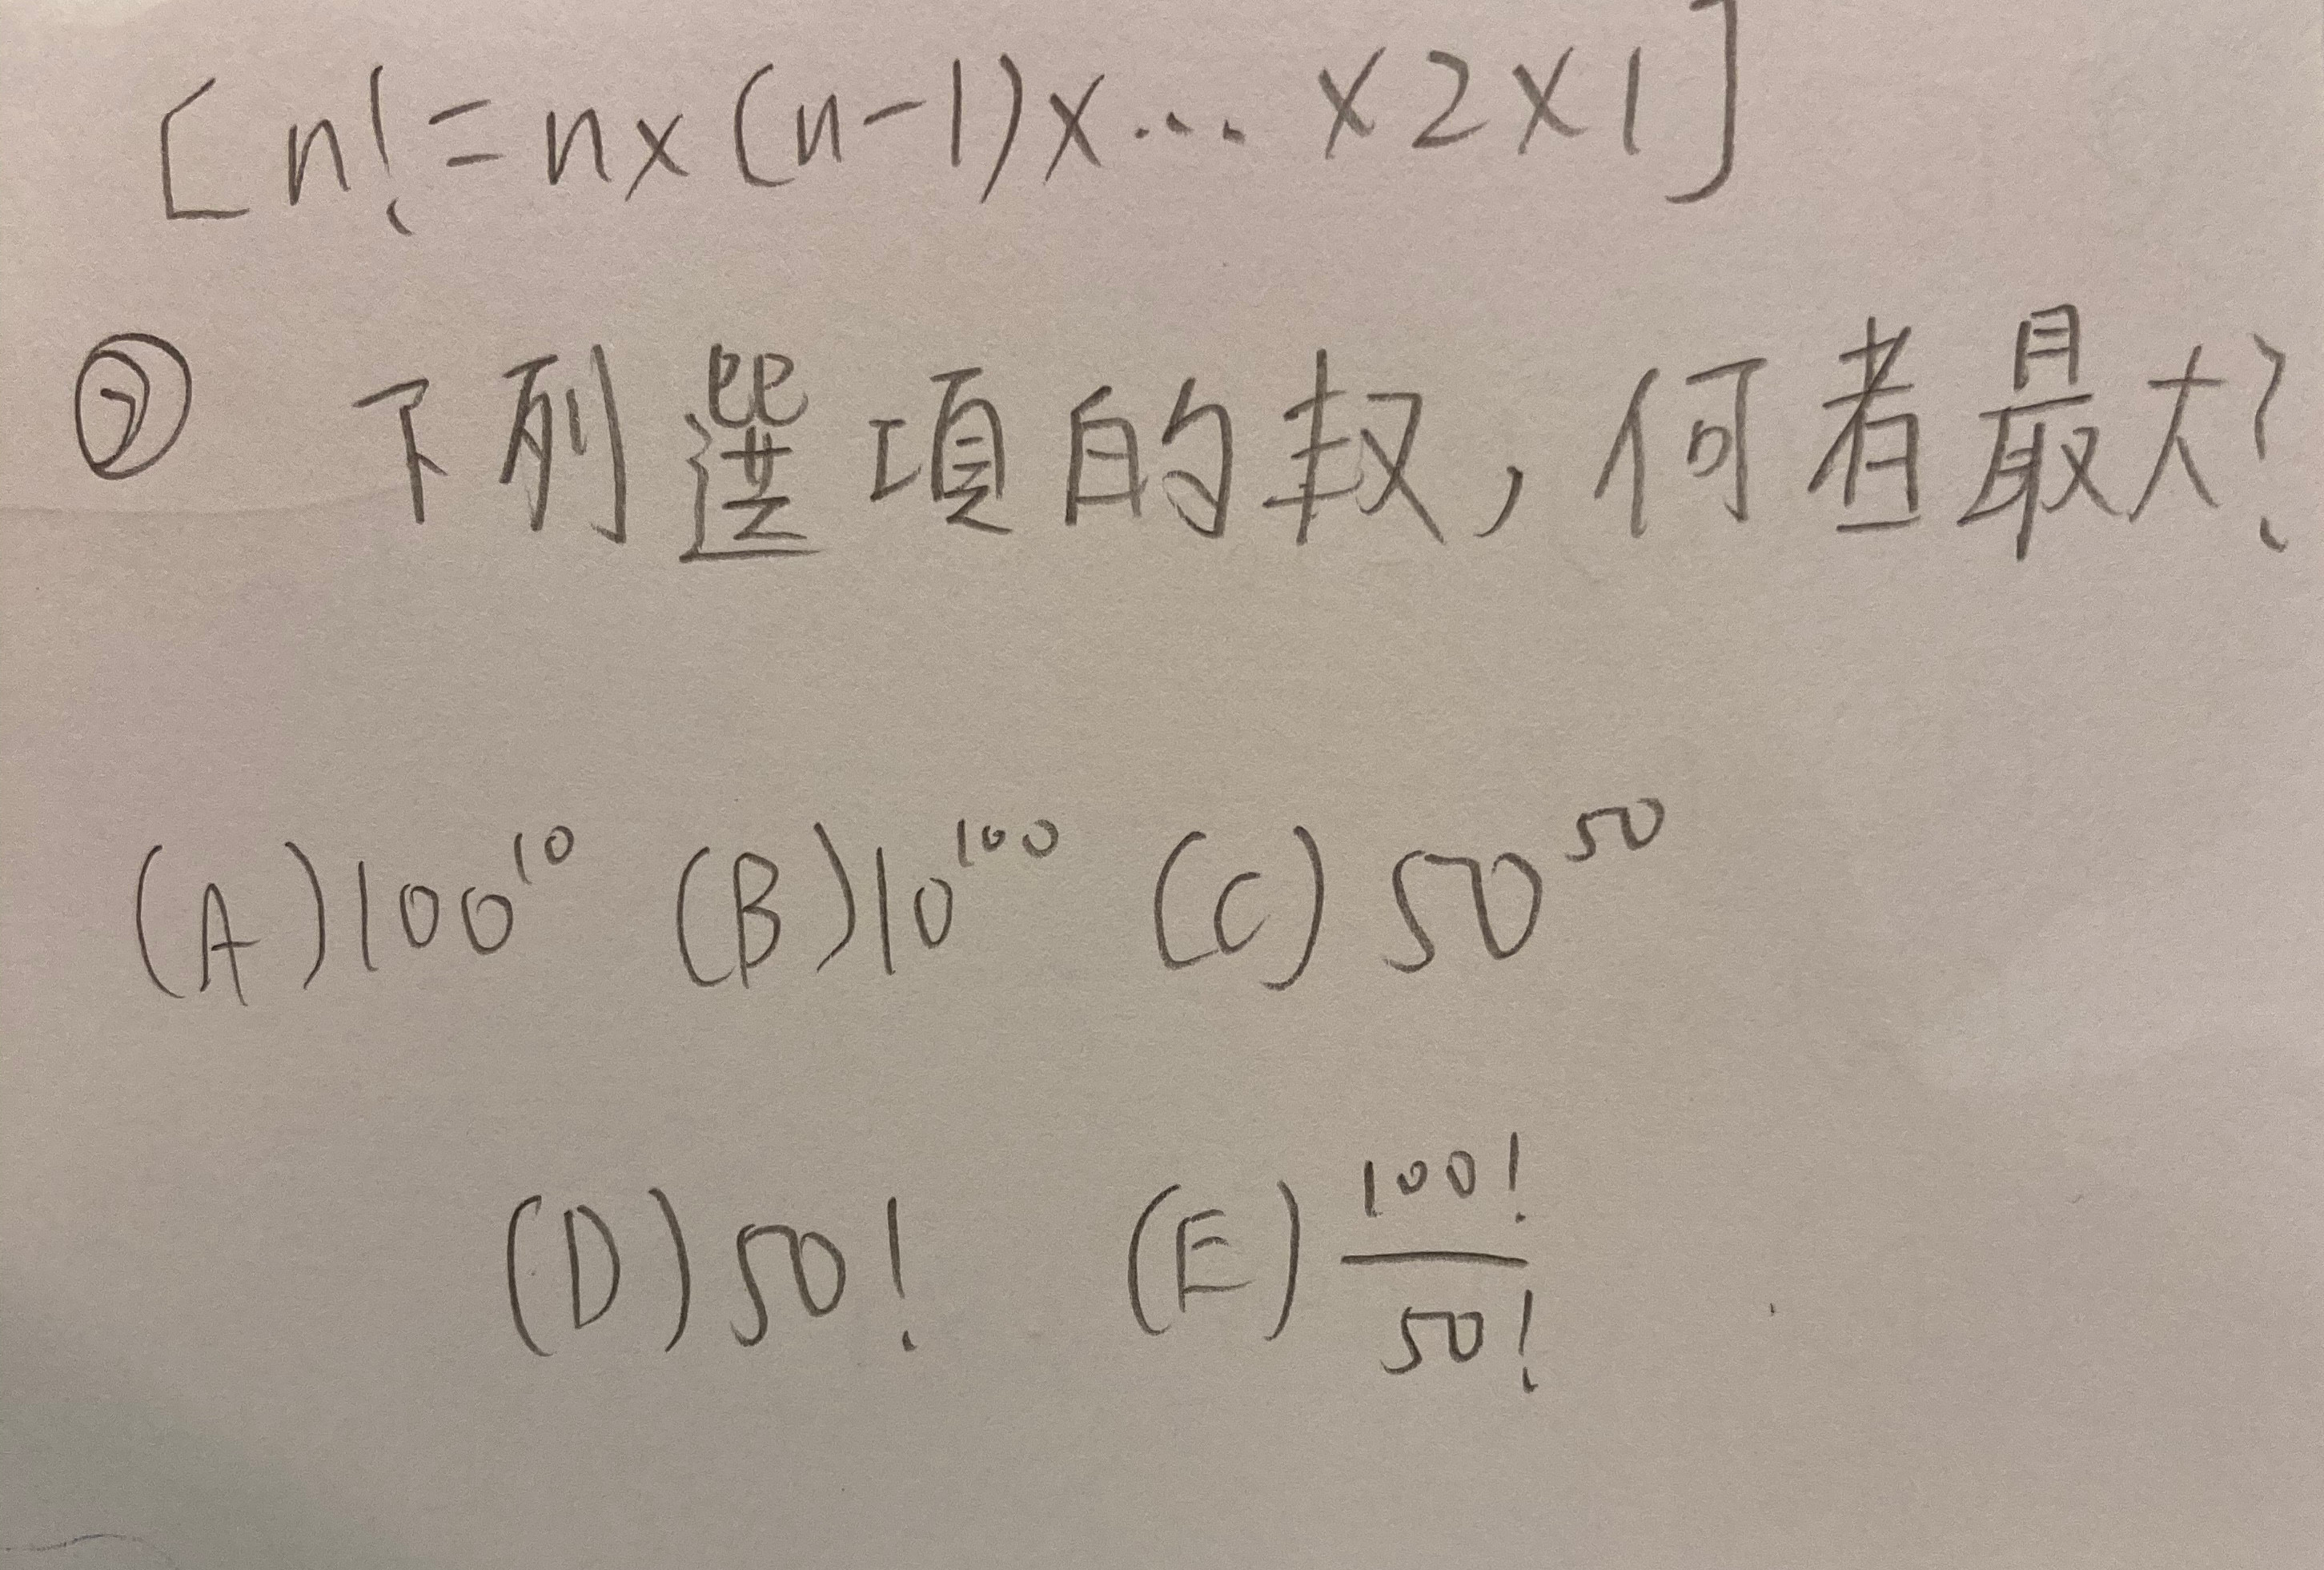 [n!=n×(n-1)×...×2×1]
② 下列選項的数,何者最大?
(A)100^10 (B)10^100 (C)50^50
(D)50! (E)100!/50!